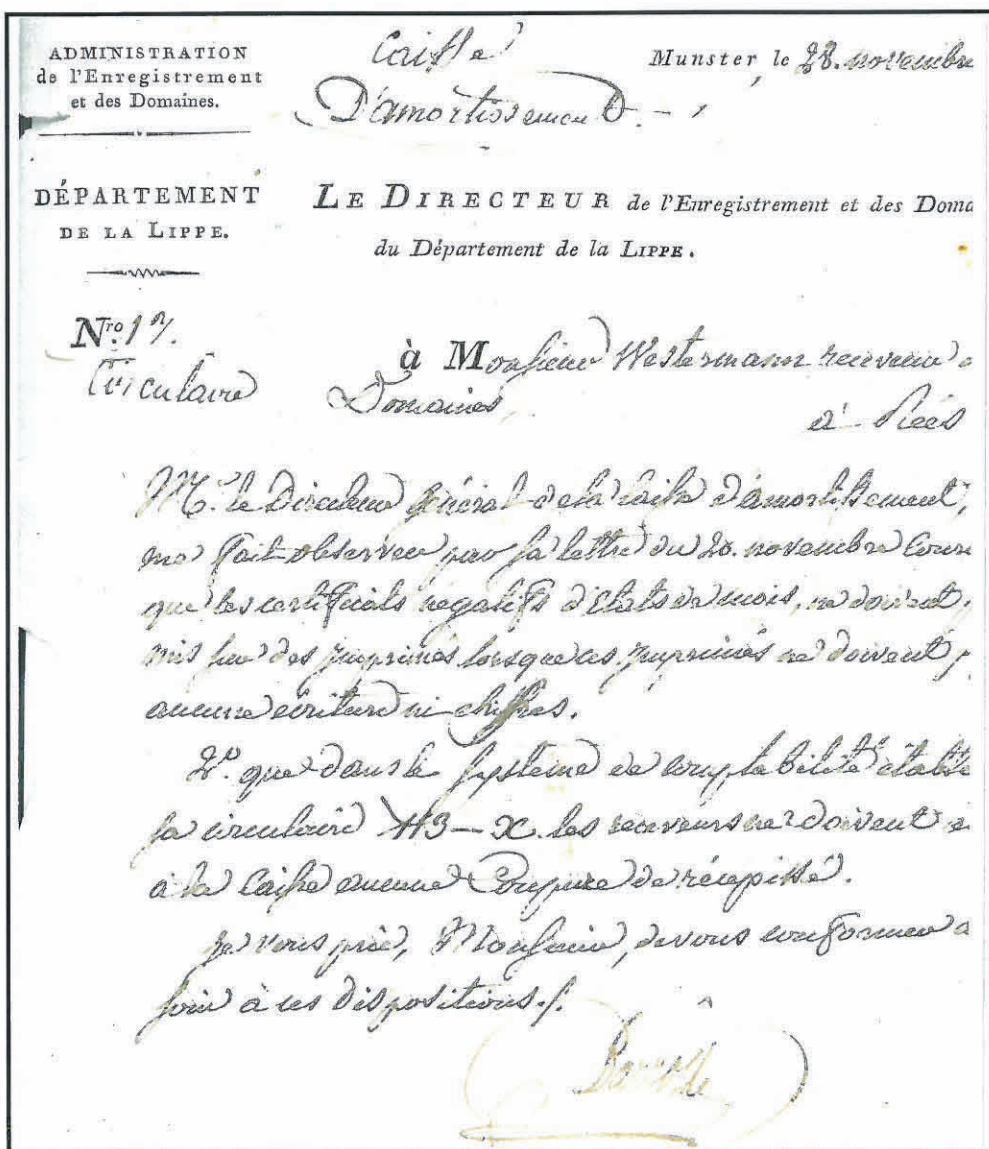 ADMINISTRATION
de l'Enregistrement
et des Domaines.
Caisse
D'amortissement. -
Munster, le 28. novembre
DÉPARTEMENT
DE LA LIPPE.
LE DIRECTEUR de l'Enregistrement et des Doma
du Département de la LIPPE.
Nro. 17.
Circulaire
à Monsieur Westermann receveur
Domaines
à Rées
Mr. le Directeur général de la Caisse d'amortissement,
me fait observer par sa lettre du 20. novembre Cour
que les certificats négatifs d'états de mois, ne doivent
mis sur des imprimés lorsque ces imprimés ne doivent
aucune écriture ni chiffres.
2o. que dans le système de comptabilité établie
sa circulaire les receveurs ne doivent
à la Caisse aucune Coupure de récépissé.
Je vous prie, Monsieur, de vous conformer a
soin à ces dispositions./.